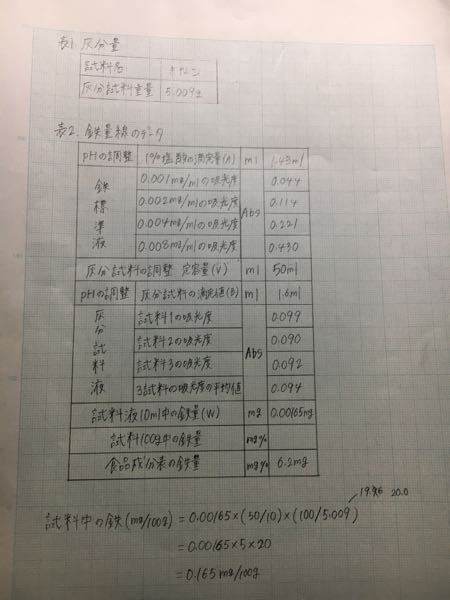 表1. 灰分量
試料名 きなこ
灰分試料重量 5.009g
表2. 鉄量線のデータ
pHの調整 1%塩酸の滴定量(A) ml 1.45ml
鉄標準液 0.001mg/mlの吸光度 Abs 0.044
0.002mg/mlの吸光度 0.114
0.004mg/mlの吸光度 0.221
0.008mg/mlの吸光度 0.430
灰分試料の調整 定容量(V) ml 50ml
pHの調整 灰分試料の滴定値(B) ml 1.6ml
灰分試料液 試料1の吸光度 Abs 0.099
試料2の吸光度 0.090
試料3の吸光度 0.092
3試料の吸光度の平均値 0.094
試料液10ml中の鉄量(W) mg 0.00165mg
試料100g中の鉄量 mg%
食品成分表の鉄量 mg% 6.2mg
19.96 20.0
試料中の鉄(mg/100g) = 0.00165×(50/10)×(100/5.009)
= 0.00165×5×20
= 0.165mg/100g